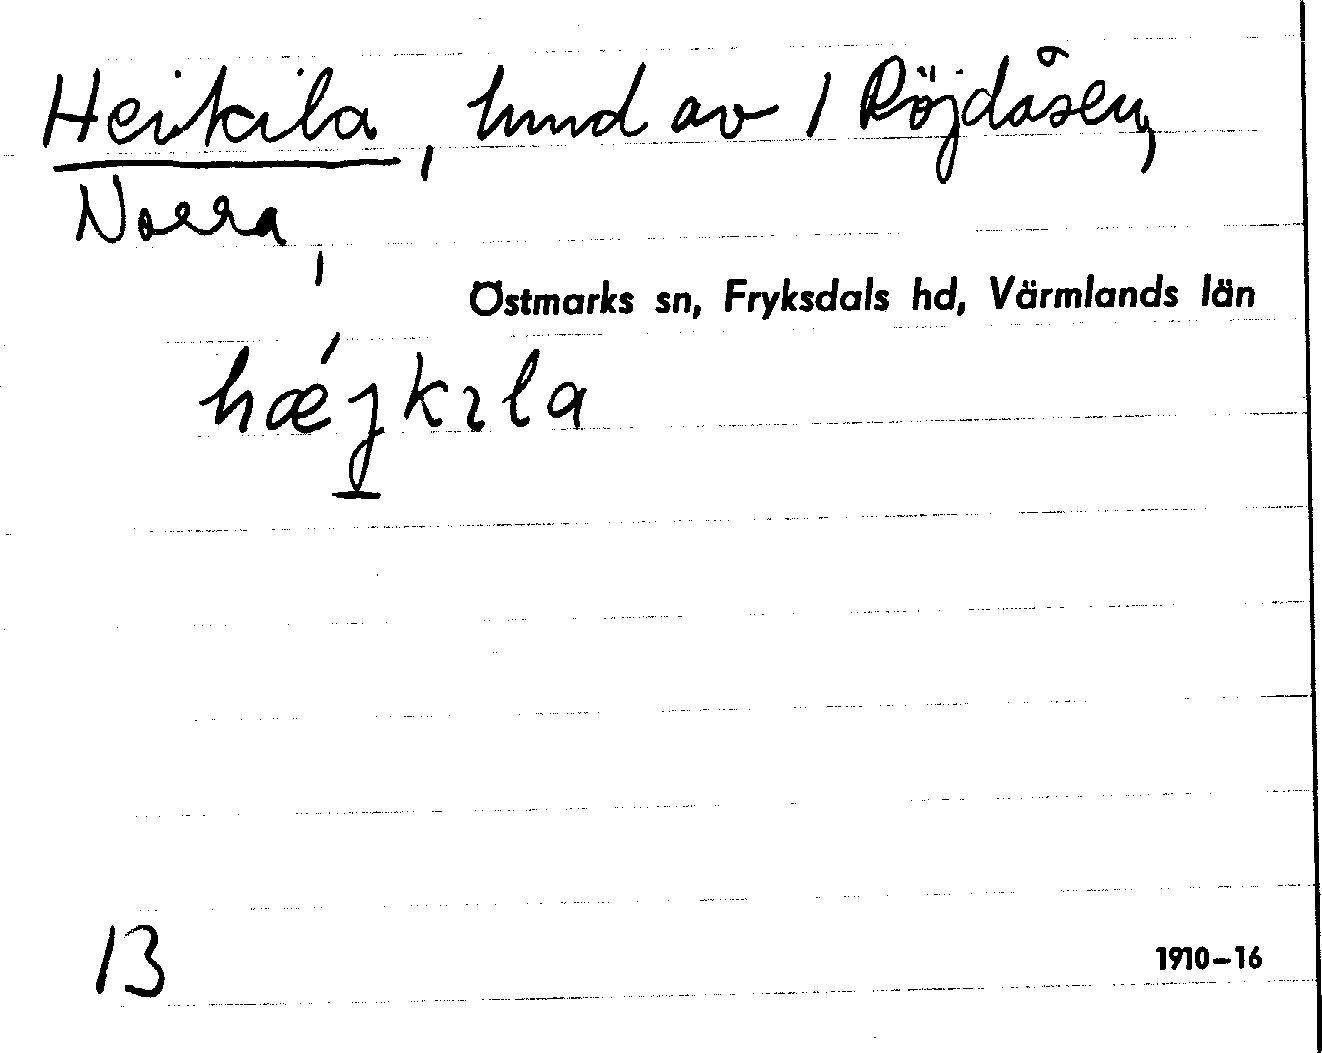 Heikila, hmd av 1 Röjdåsen,
Norra,
Östmarks sn, Fryksdals hd, Värmlands län
hǽjkıla
13
1910–16